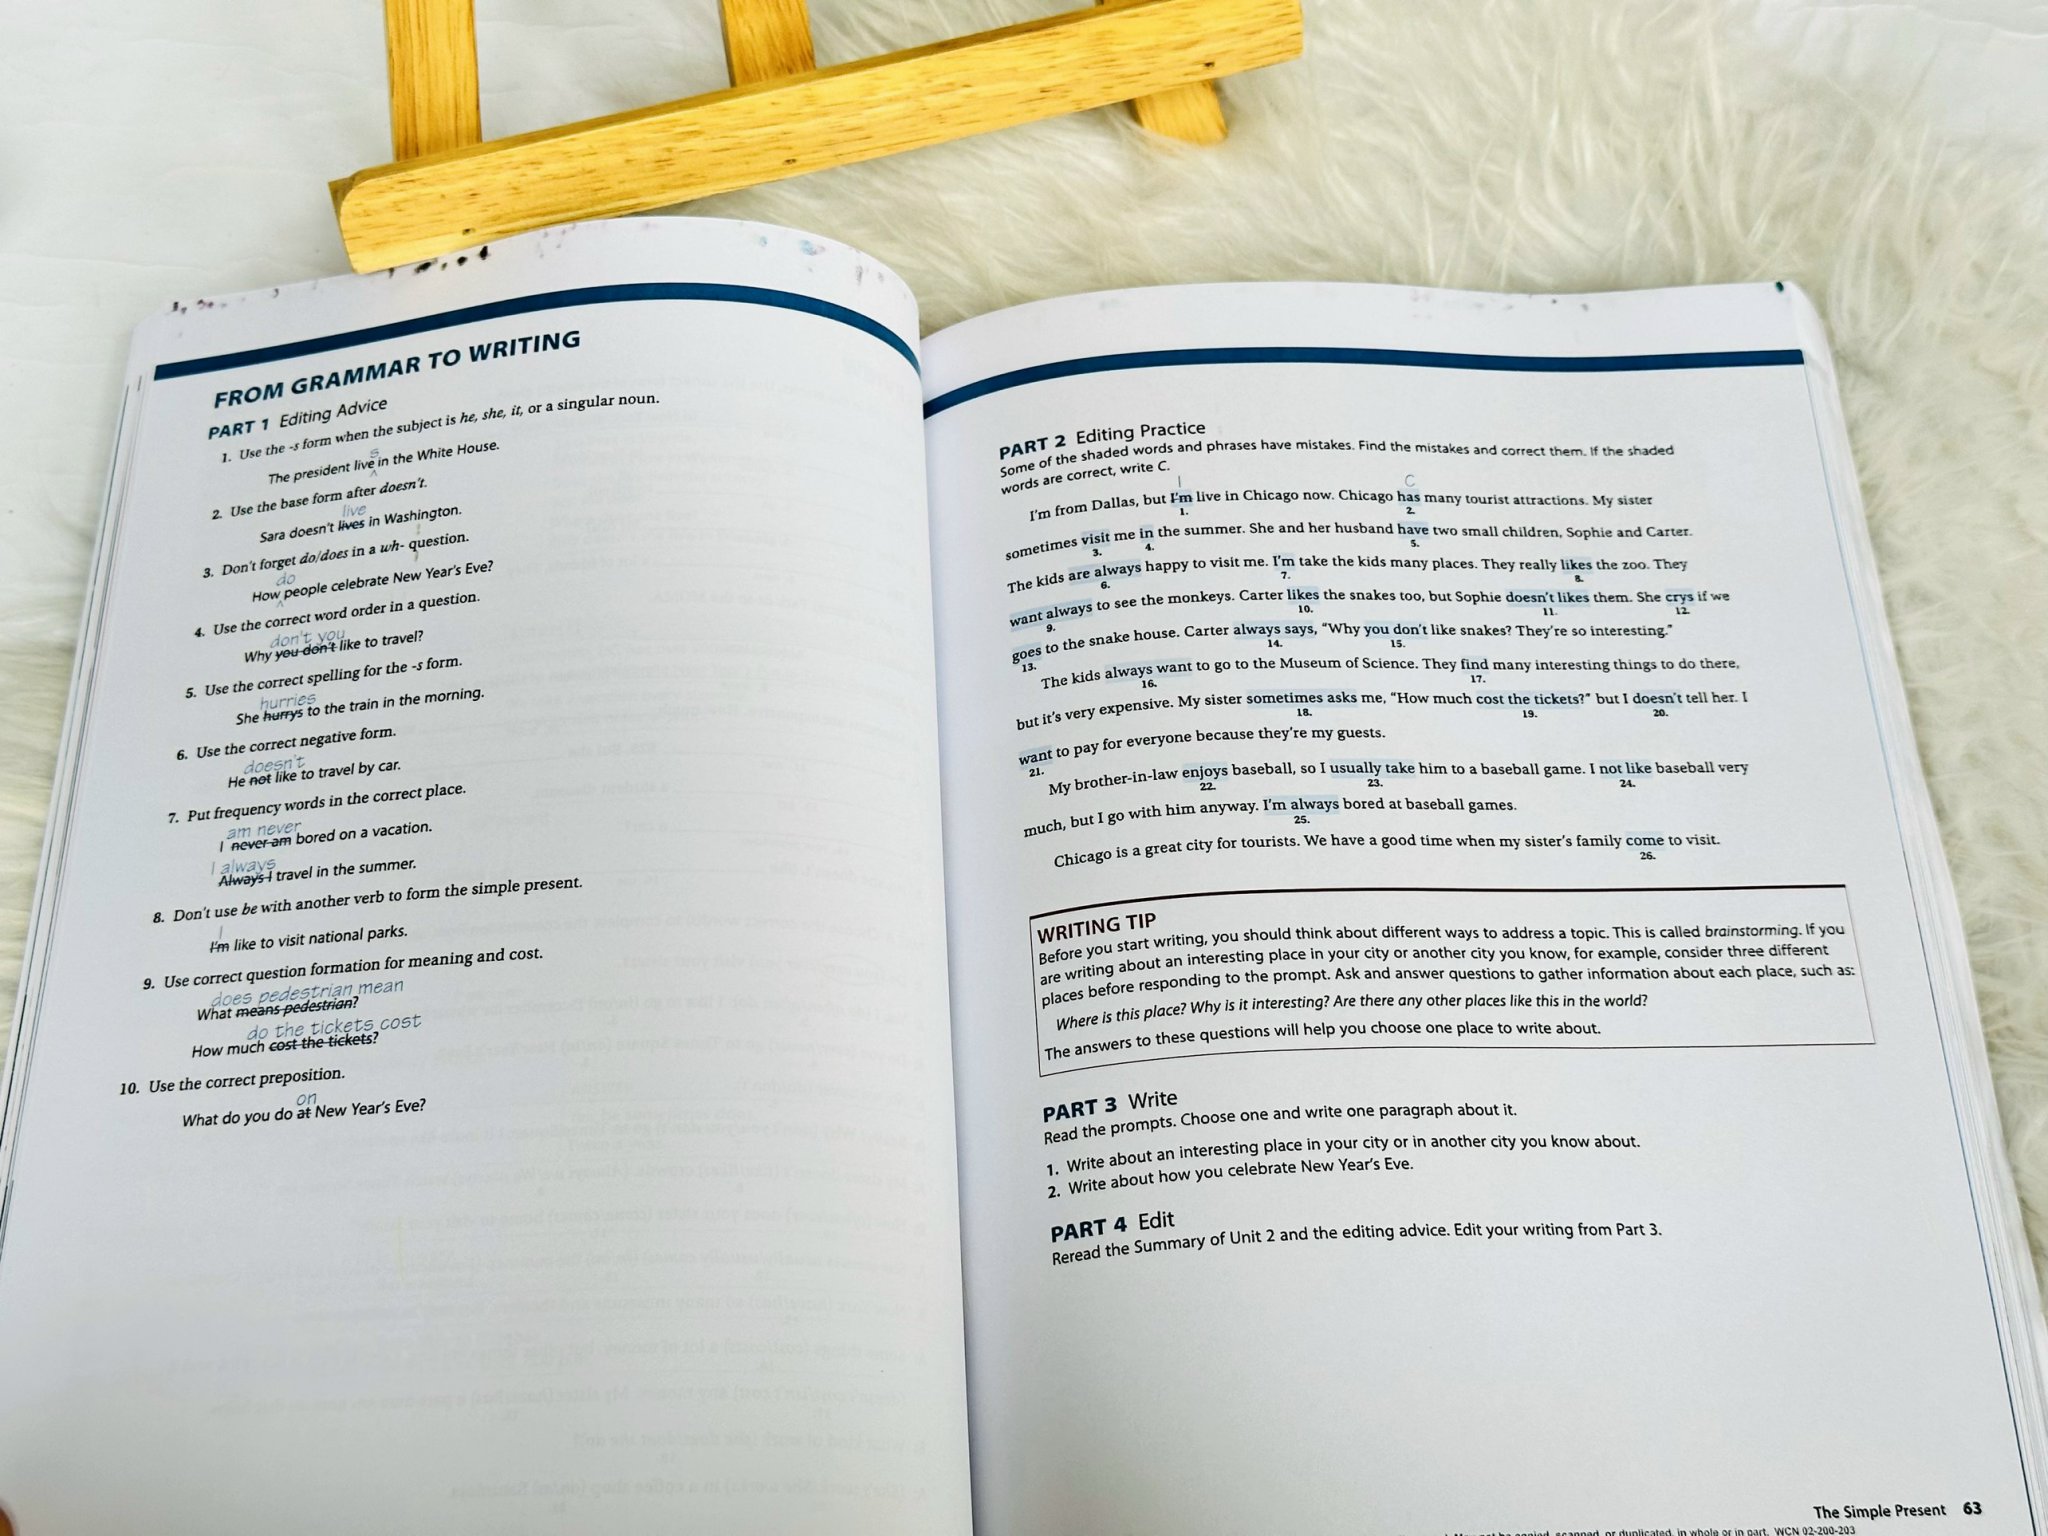 FROM GRAMMAR TO WRITING
PART 1 Editing Advice
1. Use the -s form when the subject is he, she, it, or a singular noun.
s
The president live in the White House.
^
2. Use the base form after doesn't.
live
Sara doesn't lives in Washington.
3. Don't forget do/does in a wh- question.
do
How people celebrate New Year's Eve?
^
4. Use the correct word order in a question.
don't you
Why you don't like to travel?
5. Use the correct spelling for the -s form.
hurries
She hurrys to the train in the morning.
6. Use the correct negative form.
doesn't
He not like to travel by car.
7. Put frequency words in the correct place.
am never
I never am bored on a vacation.
I always
Always I travel in the summer.
8. Don't use be with another verb to form the simple present.
I
I'm like to visit national parks.
9. Use correct question formation for meaning and cost.
does pedestrian mean
What means pedestrian?
do the tickets cost
How much cost the tickets?
10. Use the correct preposition.
on
What do you do at New Year's Eve?
PART 2 Editing Practice
Some of the shaded words and phrases have mistakes. Find the mistakes and correct them. If the shaded
words are correct, write C.
I C
I'm from Dallas, but I'm live in Chicago now. Chicago has many tourist attractions. My sister
1. 2.
sometimes visit me in the summer. She and her husband have two small children, Sophie and Carter.
3. 4. 5.
The kids are always happy to visit me. I'm take the kids many places. They really likes the zoo. They
6. 7. 8.
want always to see the monkeys. Carter likes the snakes too, but Sophie doesn't likes them. She crys if we
9. 10. 11. 12.
goes to the snake house. Carter always says, "Why you don't like snakes? They're so interesting."
13. 14. 15.
The kids always want to go to the Museum of Science. They find many interesting things to do there,
16. 17.
but it's very expensive. My sister sometimes asks me, "How much cost the tickets?" but I doesn't tell her. I
18. 19. 20.
want to pay for everyone because they're my guests.
21.
My brother-in-law enjoys baseball, so I usually take him to a baseball game. I not like baseball very
22. 23. 24.
much, but I go with him anyway. I'm always bored at baseball games.
25.
Chicago is a great city for tourists. We have a good time when my sister's family come to visit.
26.
WRITING TIP
Before you start writing, you should think about different ways to address a topic. This is called brainstorming. If you
are writing about an interesting place in your city or another city you know, for example, consider three different
places before responding to the prompt. Ask and answer questions to gather information about each place, such as:
Where is this place? Why is it interesting? Are there any other places like this in the world?
The answers to these questions will help you choose one place to write about.
PART 3 Write
Read the prompts. Choose one and write one paragraph about it.
1. Write about an interesting place in your city or in another city you know about.
2. Write about how you celebrate New Year's Eve.
PART 4 Edit
Reread the Summary of Unit 2 and the editing advice. Edit your writing from Part 3.
The Simple Present 63
copied, scanned, or duplicated, in whole or in part. WCN 02-200-203